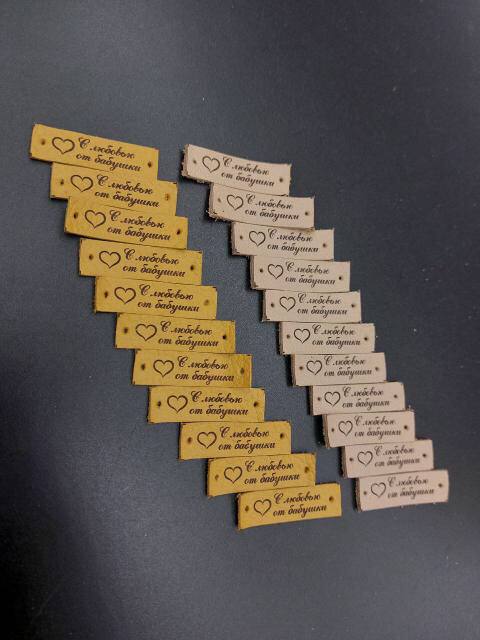 С любовью
от бабушки
С любовью
от бабушки
С любовью
от бабушки
С любовью
от бабушки
С любовью
от бабушки
С любовью
от бабушки
С любовью
от бабушки
С любовью
от бабушки
С любовью
от бабушки
С любовью
от бабушки
С любовью
от бабушки
С любовью
от бабушки
С любовью
от бабушки
С любовью
от бабушки
С любовью
от бабушки
С любовью
от бабушки
С любовью
от бабушки
С любовью
от бабушки
С любовью
от бабушки
С любовью
от бабушки
С любовью
от бабушки
С любовью
от бабушки